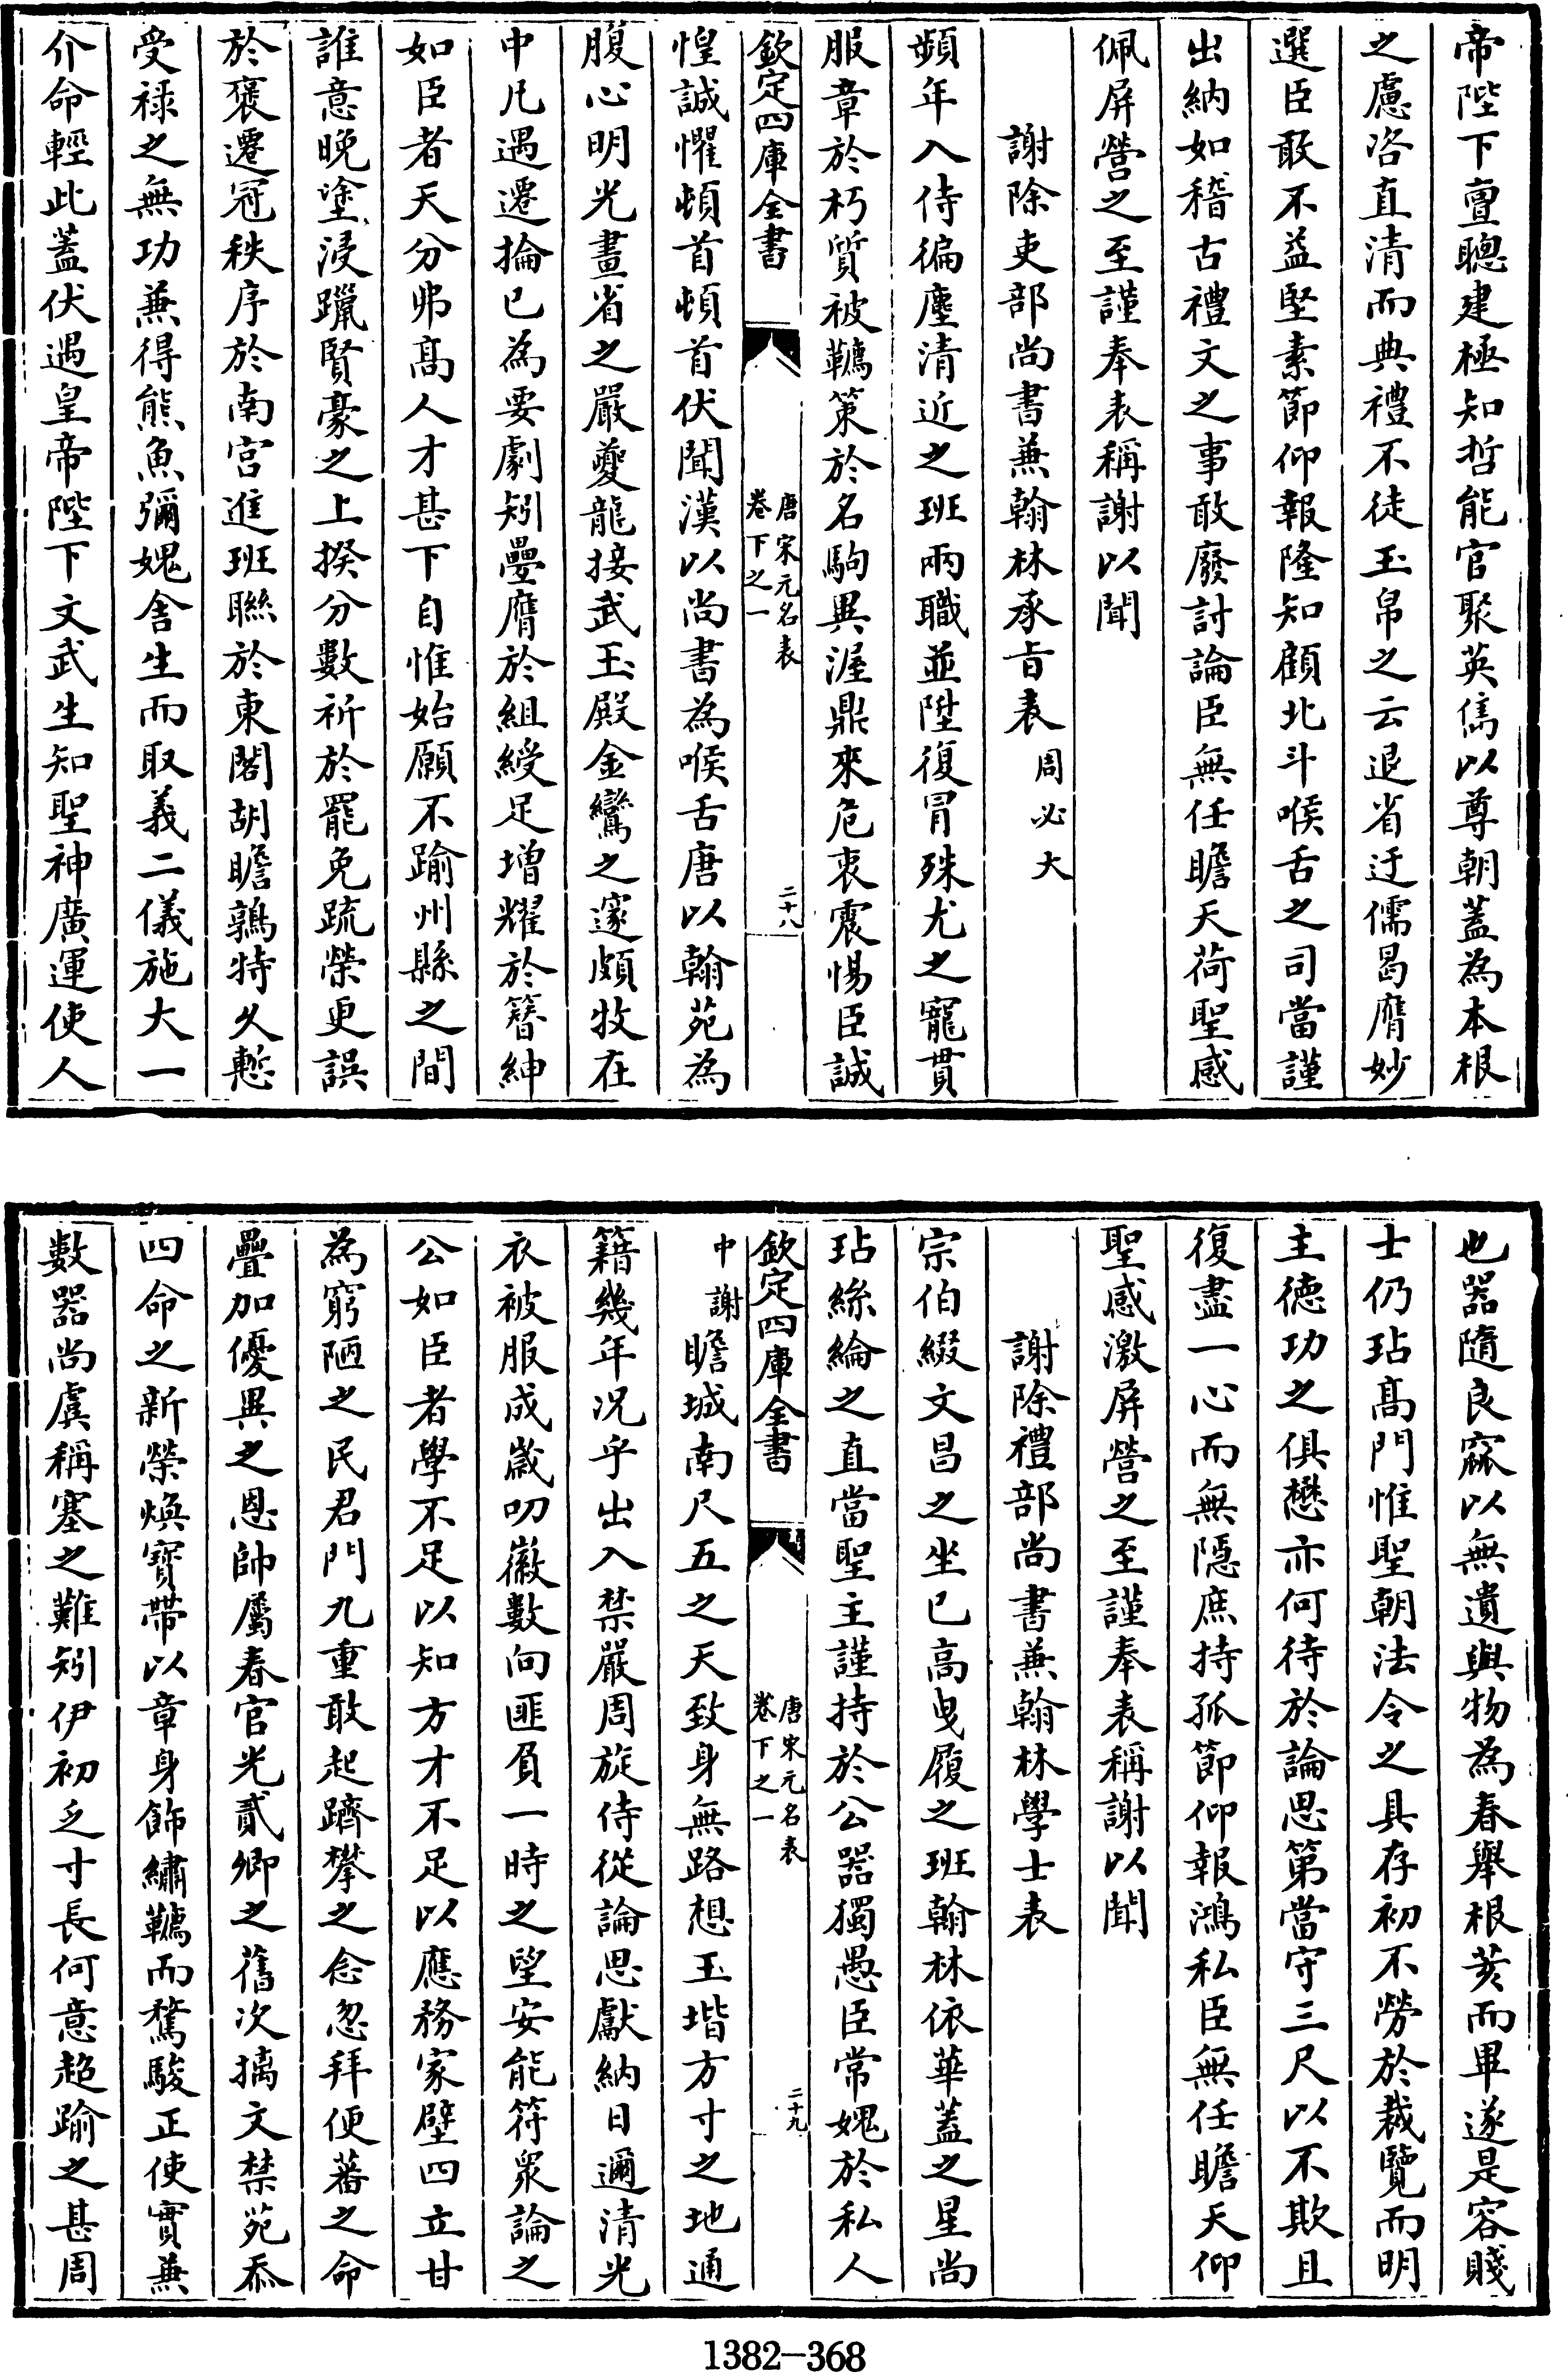 帝陛下亶聰建極知哲能官聚英儁以尊朝蓋為本根
之慮洛直清而典禮不徒玉帛之云退省迂儒曷膺妙
選臣敢不益堅素節仰報隆知顧北斗喉舌之司當謹
出納如稽古禮文之事敢廢討論臣無任瞻天荷聖感
佩屏營之至謹奉表稱謝以聞
謝除吏部尚書兼翰林承旨表周必大
頻年入侍徧塵清近之班兩職並陞復冒殊尤之寵貫
服章於朽質被韉策於名駒異渥鼎來危衷震惕臣誠
欽定四庫全書
唐宋元名表
卷下之一
二十八
惶誠懼頓首頓首伏聞漢以尚書為喉舌唐以翰苑為
腹心明光畫省之嚴夔龍接武玉殿金鑾之邃頗牧在
中凡遇遷掄已為要劇矧疊膺於組綬足增耀於簪紳
如臣者天分弗髙人才甚下自惟始願不踰州縣之間
誰意晚塗浸躐賢豪之上揆分數祈於罷免疏榮更誤
於褒遷冠秩序於南宫進班聯於東閣胡瞻鶉特乆慙
受祿之無功兼得熊魚彌媿舍生而取義二儀施大一
介命輕此蓋伏遇皇帝陛下文武生知聖神廣運使人
也器隨良窳以無遺與物為春舉根荄而畢遂是容賤
士仍玷髙門惟聖朝法令之具存初不勞於裁覽而明
主徳功之俱懋亦何待於論思第當守三尺以不欺且
復盡一心而無隱庶持孤節仰報鴻私臣無任瞻天仰
聖感激屏營之至謹奉表稱謝以聞
謝除禮部尚書兼翰林學士表
宗伯綴文昌之坐已高曵履之班翰林依華蓋之星尚
玷絲綸之直當聖主謹持於公器獨愚臣常媿於私人
欽定四庫全書
唐宋元名表
卷下之一
二十九
中謝瞻城南尺五之天致身無路想玉堦方寸之地通
籍幾年况乎出入禁嚴周旋侍從論思獻納日邇清光
衣被服成嵗叨徽數向匪負一時之望安能符衆論之
公如臣者學不足以知方才不足以應務家壁四立甘
為窮陋之民君門九重敢起躋攀之念忽拜便蕃之命
疊加優異之恩帥屬春官光貳卿之舊次摛文禁苑忝
四命之新榮煥寳帶以章身飾繡韉而騖駿正使實兼
數器尚虞稱塞之難矧伊初乏寸長何意超踰之甚周
1382-368